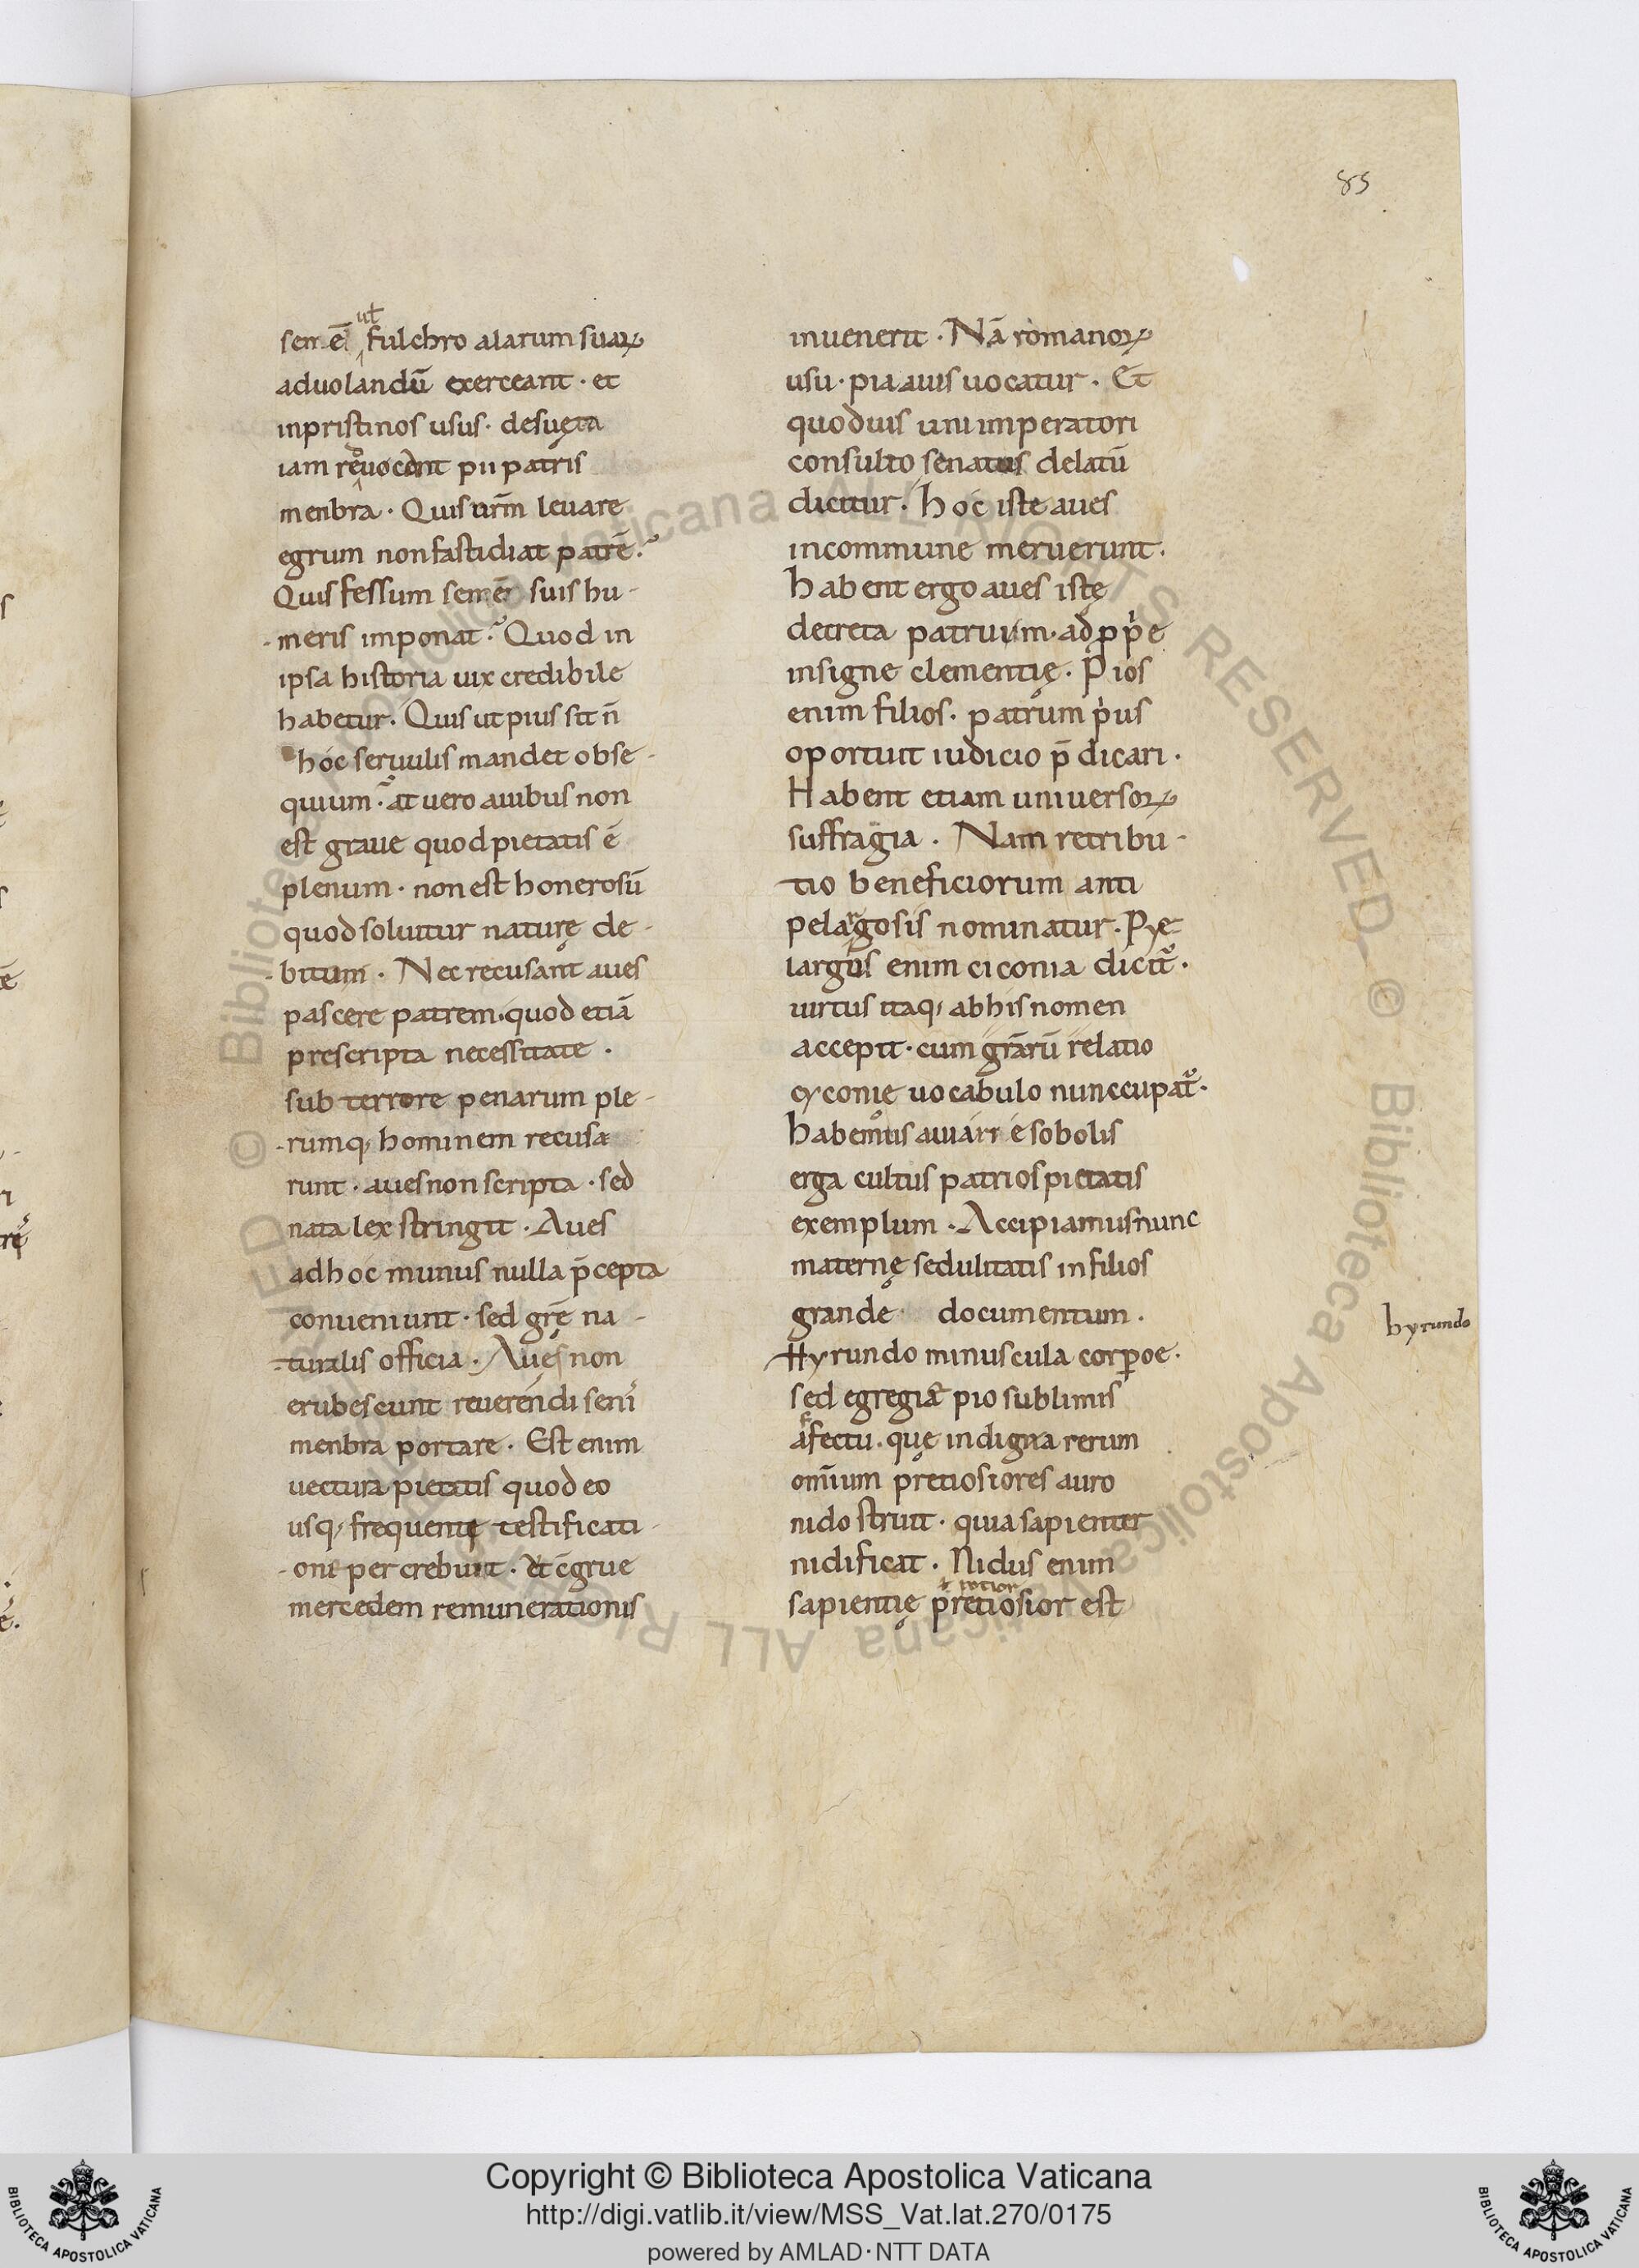 85
senē ut fulchro alarum suaꝝ
aduolandū exerceant · et
inpristinos usus · desuęta
iam reuocent pii patris
menbra · Quis urm̄ leuare
egrum non fastidiat patrē?
Quis fessum senē suis hu-
-meris imponat? Quod in
ipsa historia uix credibile
habetur. Quis ut pius sit n̄
hóc seruulis mandet obse-
quium? at uero auibus non
est graue quod pietatis ē
plenum · non est honerosū
quod soluitur naturę de-
-bitum · Nec recusant aues
pascere patrem · quod etiā
prescripta necessitate ·
sub terrore penarum ple-
-rumq; hominem recusa
runt · aues non scripta · sed
nata lex stringit · Aues
ad hóc munus nulla p̄cepta
conueniunt · sed grē na-
-turalis officia · Aues non
erubescunt reuerendi seni
menbra portare · Est enim
uectura pietatis quod eo
usq; frequentę testificati-
-one percrebuit · et c̄grue
mercedem remunerationis
inuenerit · Nā romanoꝝ
usu · pia auis uocatur · Et
quoduis uni imperatori
consulto senatus delatū
dicitur · hóc iste aues
incommune meruerunt ·
habent ergo aues istę
decreta patruum · ad pp̲e
insigne clementię · Pios
enim filios · patrum p̍us
oportuit iudicio p̄dicari ·
Habent etiam uniuersoꝝ
suffragia · Nam retribu-
-tio beneficiorum anti
pelargosis nominatur · Pye-
largus enim ciconia dicit᷑ ·
uirtus itaq; ab his nomen
accepit · cum grārū relatio
cyconię uocabulo nunccupat᷑ ·
habemus auiarię sobolis
erga cultus patrios pietatis
exemplum · Accipiamus nunc
maternę sedulitatis in filios
grande documentum ·
Hyrundo minuscula corpoe ·
sed egregiæ pio sublimis
afectu · quę indigna rerum
omīum pretiosiores auro
nido struit · quia sapienter
nidificat · Nidus enim
sapientię pretiosior est
hyrundo
Copyright © Biblioteca Apostolica Vaticana
http://digi.vatlib.it/view/MSS_Vat.lat.270/0175
powered by AMLAD·NTT DATA
BIBLIOTECA APOSTOLICA VATICANA
BIBLIOTECA APOSTOLICA VATICANA